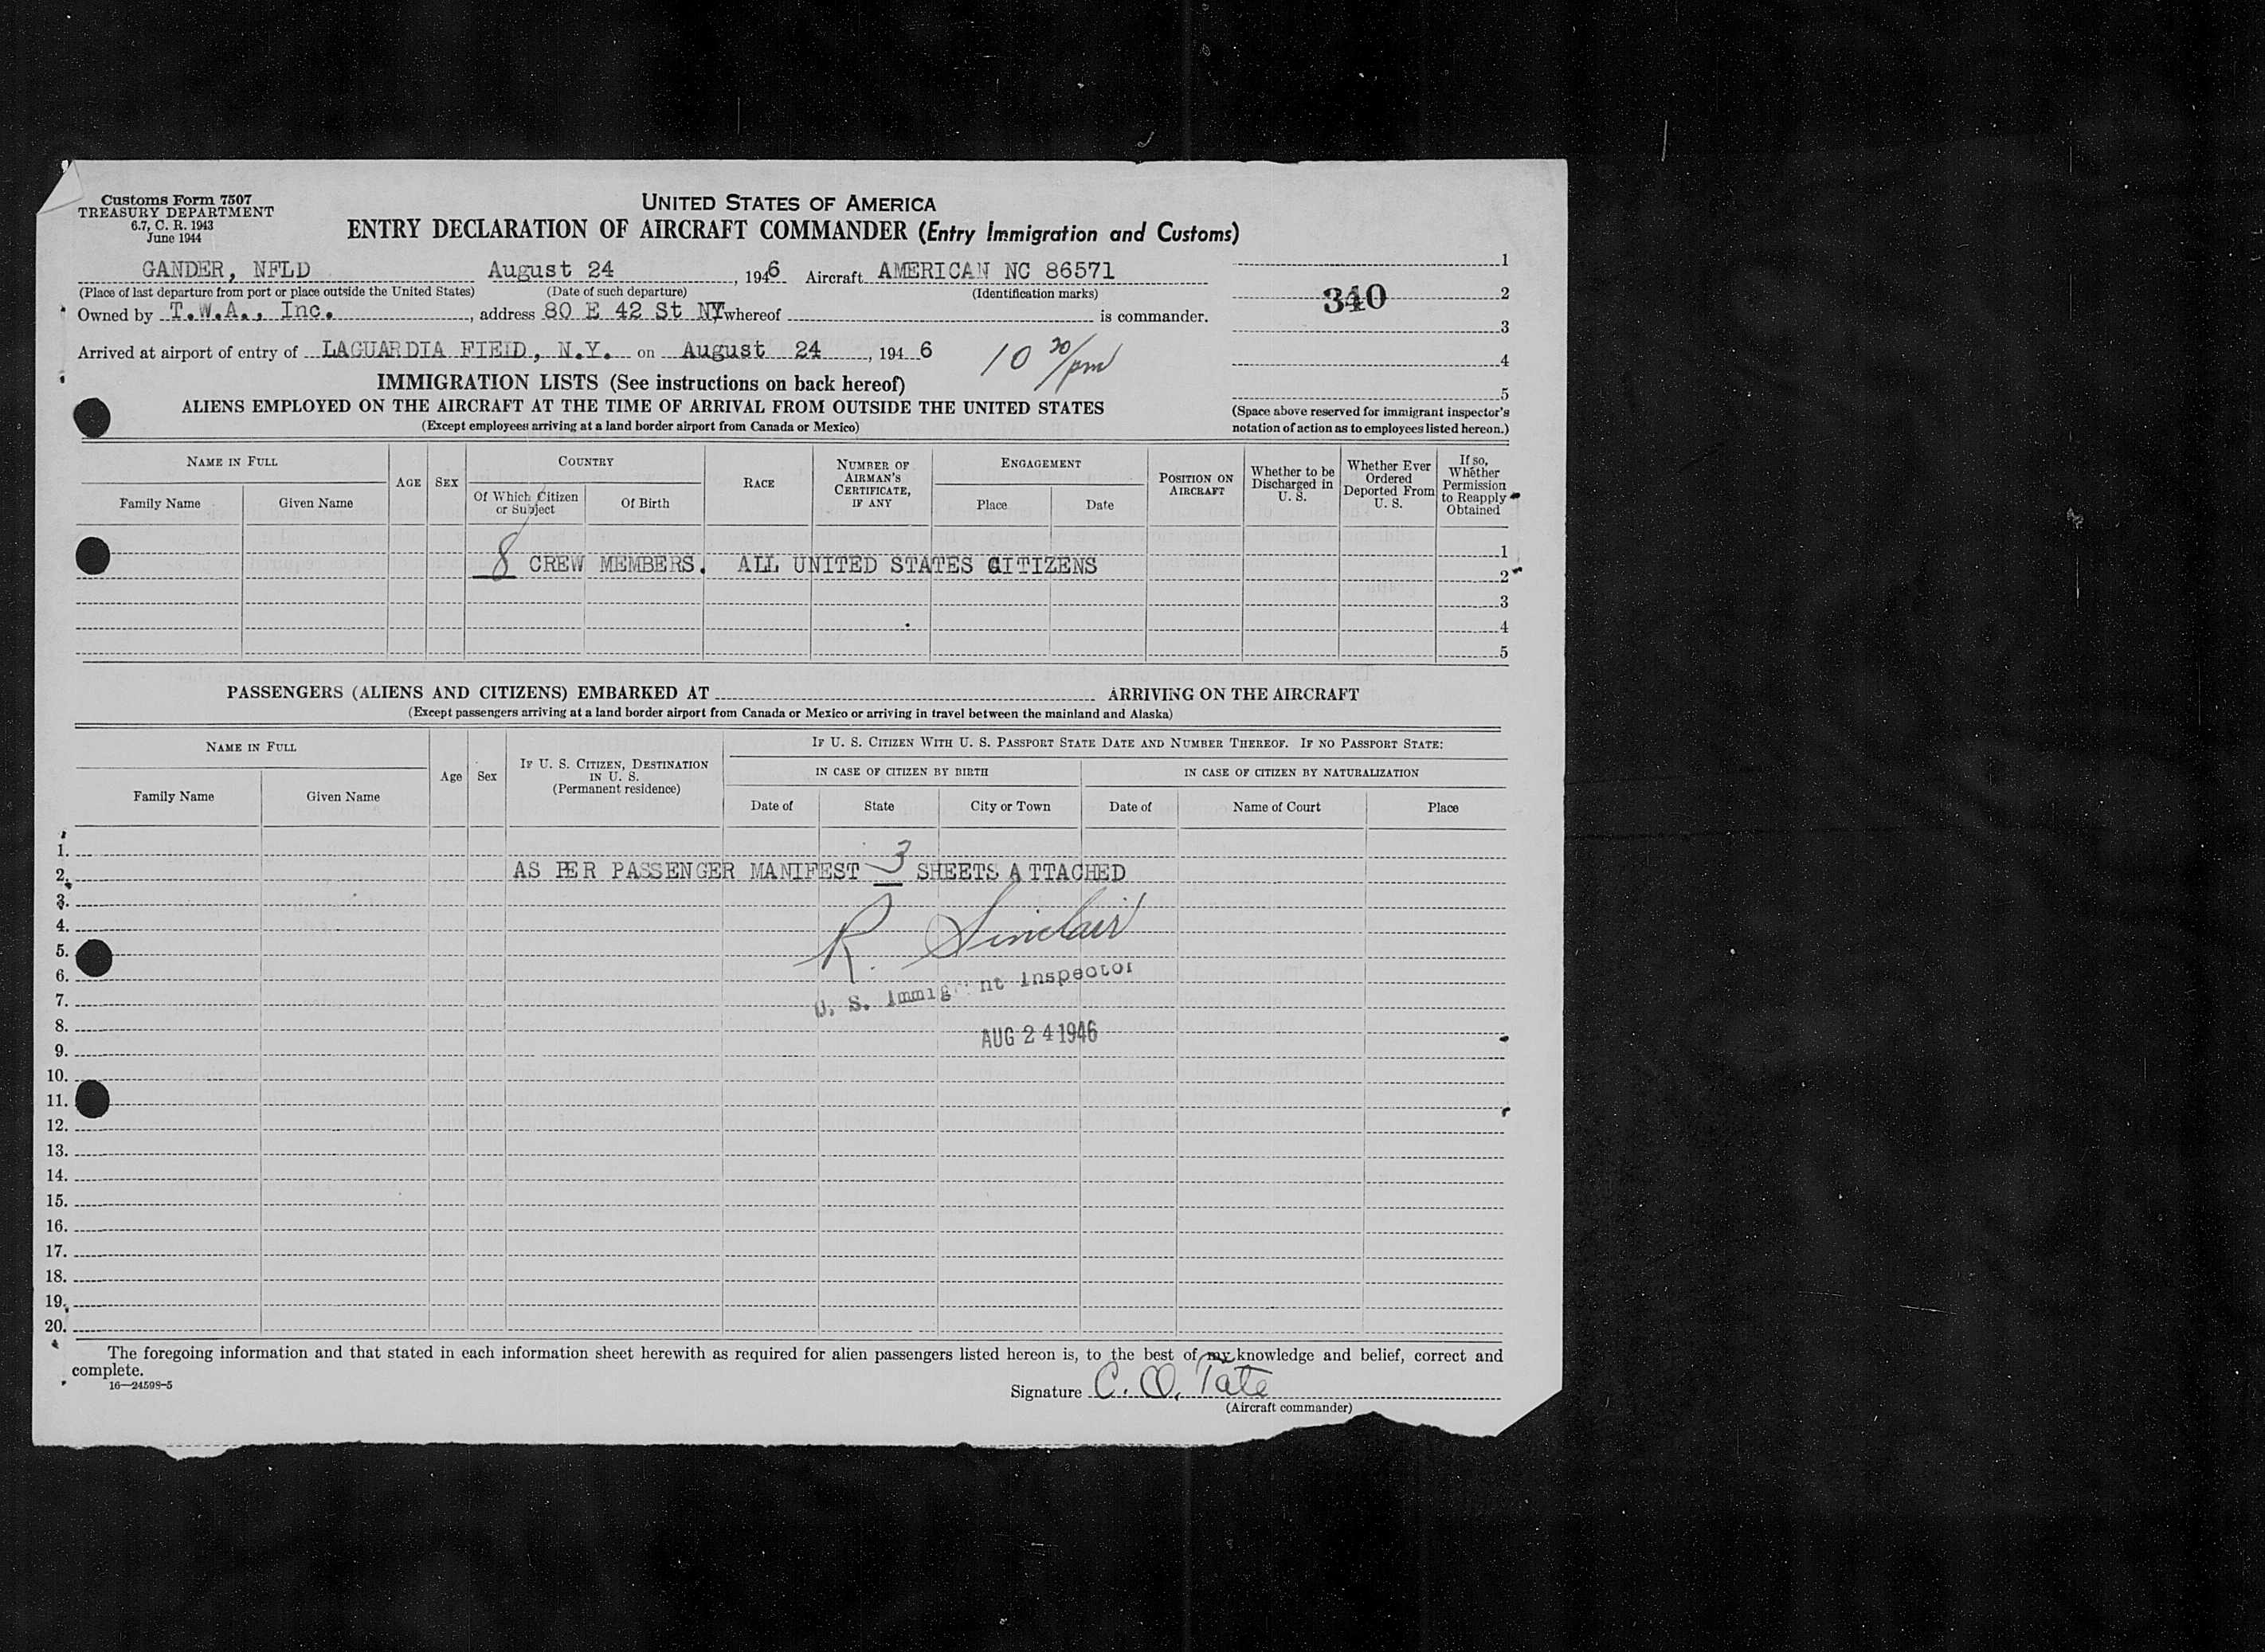 Customs Form 7507
TREASURY DEPARTMENT
6.7, C. R. 1943
June 1944
UNITED STATES OF AMERICA
ENTRY DECLARATION OF AIRCRAFT COMMANDER (Entry Immigration and Customs)
GANDER, NFLD August 24, 1946 Aircraft AMERICAN NC 86571
(Place of last departure from port or place outside the United States) (Date of such departure) (Identification marks)
Owned by T.W.A., Inc., address 80 E 42 St NY whereof is commander.
Arrived at airport of entry of LAGUARDIA FIELD, N.Y. on August 24, 1946 10 20/pm
1
2
340
3
4
5
(Space above reserved for immigrant inspector's
notation of action as to employees listed hereon.)
IMMIGRATION LISTS (See instructions on back hereof)
ALIENS EMPLOYED ON THE AIRCRAFT AT THE TIME OF ARRIVAL FROM OUTSIDE THE UNITED STATES
(Except employees arriving at a land border airport from Canada or Mexico)
NAME IN FULL
Family Name
Given Name
AGE
SEX
COUNTRY
Of Which Citizen
or Subject
Of Birth
RACE
NUMBER OF
AIRMAN'S
CERTIFICATE,
IF ANY
ENGAGEMENT
Place
Date
POSITION ON
AIRCRAFT
Whether to be
Discharged in
U. S.
Whether Ever
Ordered
Deported From
U. S.
If so,
Whether
Permission
to Reapply
Obtained
1
8 CREW MEMBERS. ALL UNITED STATES CITIZENS
2
3
4
5
PASSENGERS (ALIENS AND CITIZENS) EMBARKED AT ARRIVING ON THE AIRCRAFT
(Except passengers arriving at a land border airport from Canada or Mexico or arriving in travel between the mainland and Alaska)
NAME IN FULL
Family Name
Given Name
Age
Sex
IF U. S. CITIZEN, DESTINATION
IN U. S.
(Permanent residence)
IF U. S. CITIZEN WITH U. S. PASSPORT STATE DATE AND NUMBER THEREOF. IF NO PASSPORT STATE:
IN CASE OF CITIZEN BY BIRTH
IN CASE OF CITIZEN BY NATURALIZATION
Date of
State
City or Town
Date of
Name of Court
Place
1.
2. AS PER PASSENGER MANIFEST 3 SHEETS ATTACHED
3.
4.
R. Sinclair
5.
6.
U. S. Immigrant Inspector
7.
8.
AUG 24 1946
9.
10.
11.
12.
13.
14.
15.
16.
17.
18.
19.
20.
The foregoing information and that stated in each information sheet herewith as required for alien passengers listed hereon is, to the best of my knowledge and belief, correct and
complete.
16—24598-5
Signature C. O. Tate
(Aircraft commander)